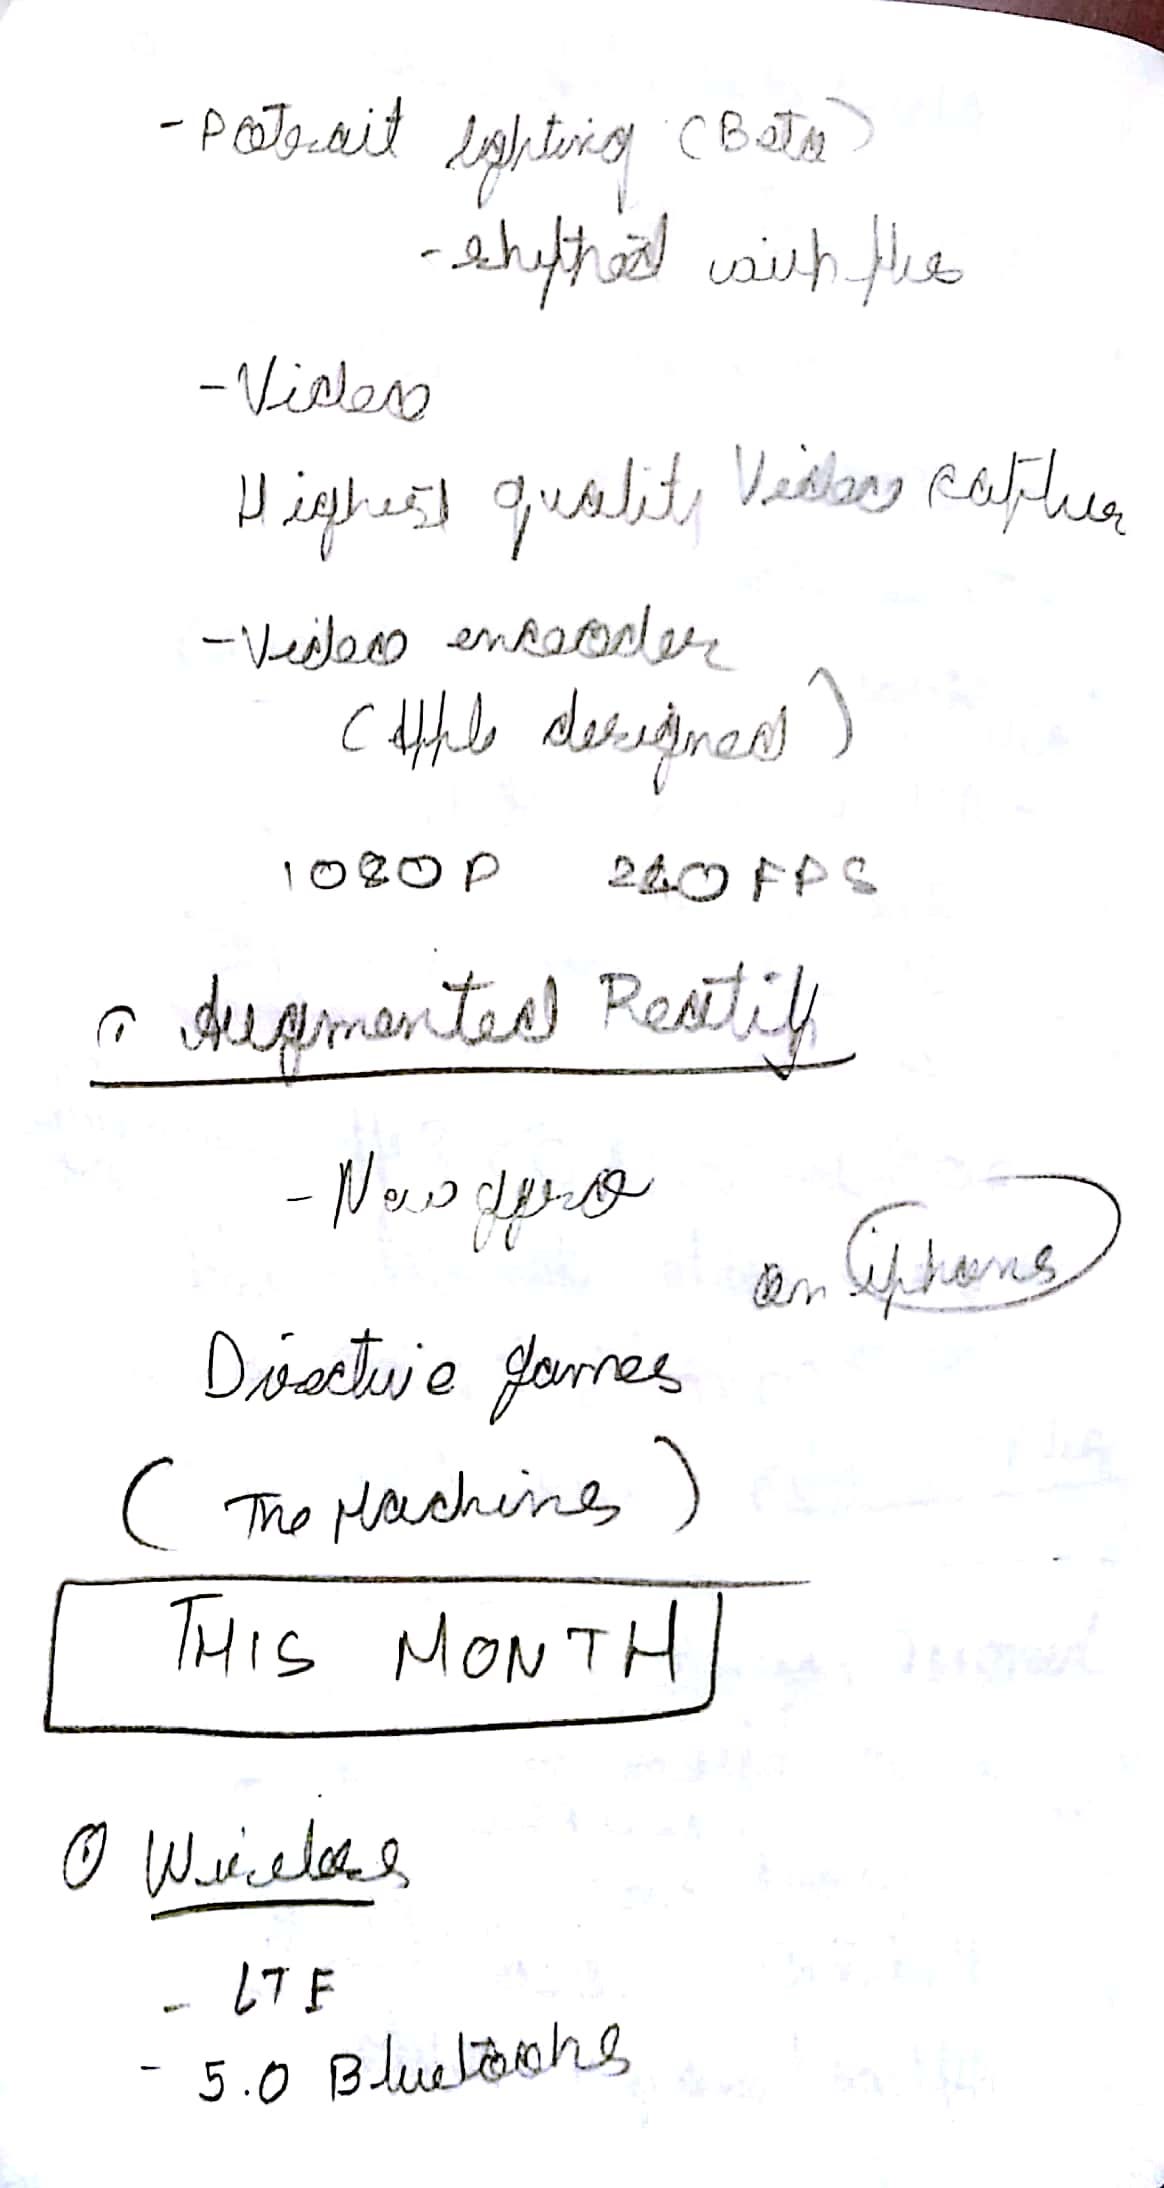 - Potrait lighting (Beta)
- with the
- Video
Highest quality Video captur
- Video encooder
(Apple designed)
1080P 240FPS
Augmented Reality
- New gyro
on iphone
Directive games
(The Machines)
THIS MONTH
Wireless
- LTE
- 5.0 Bluetooths